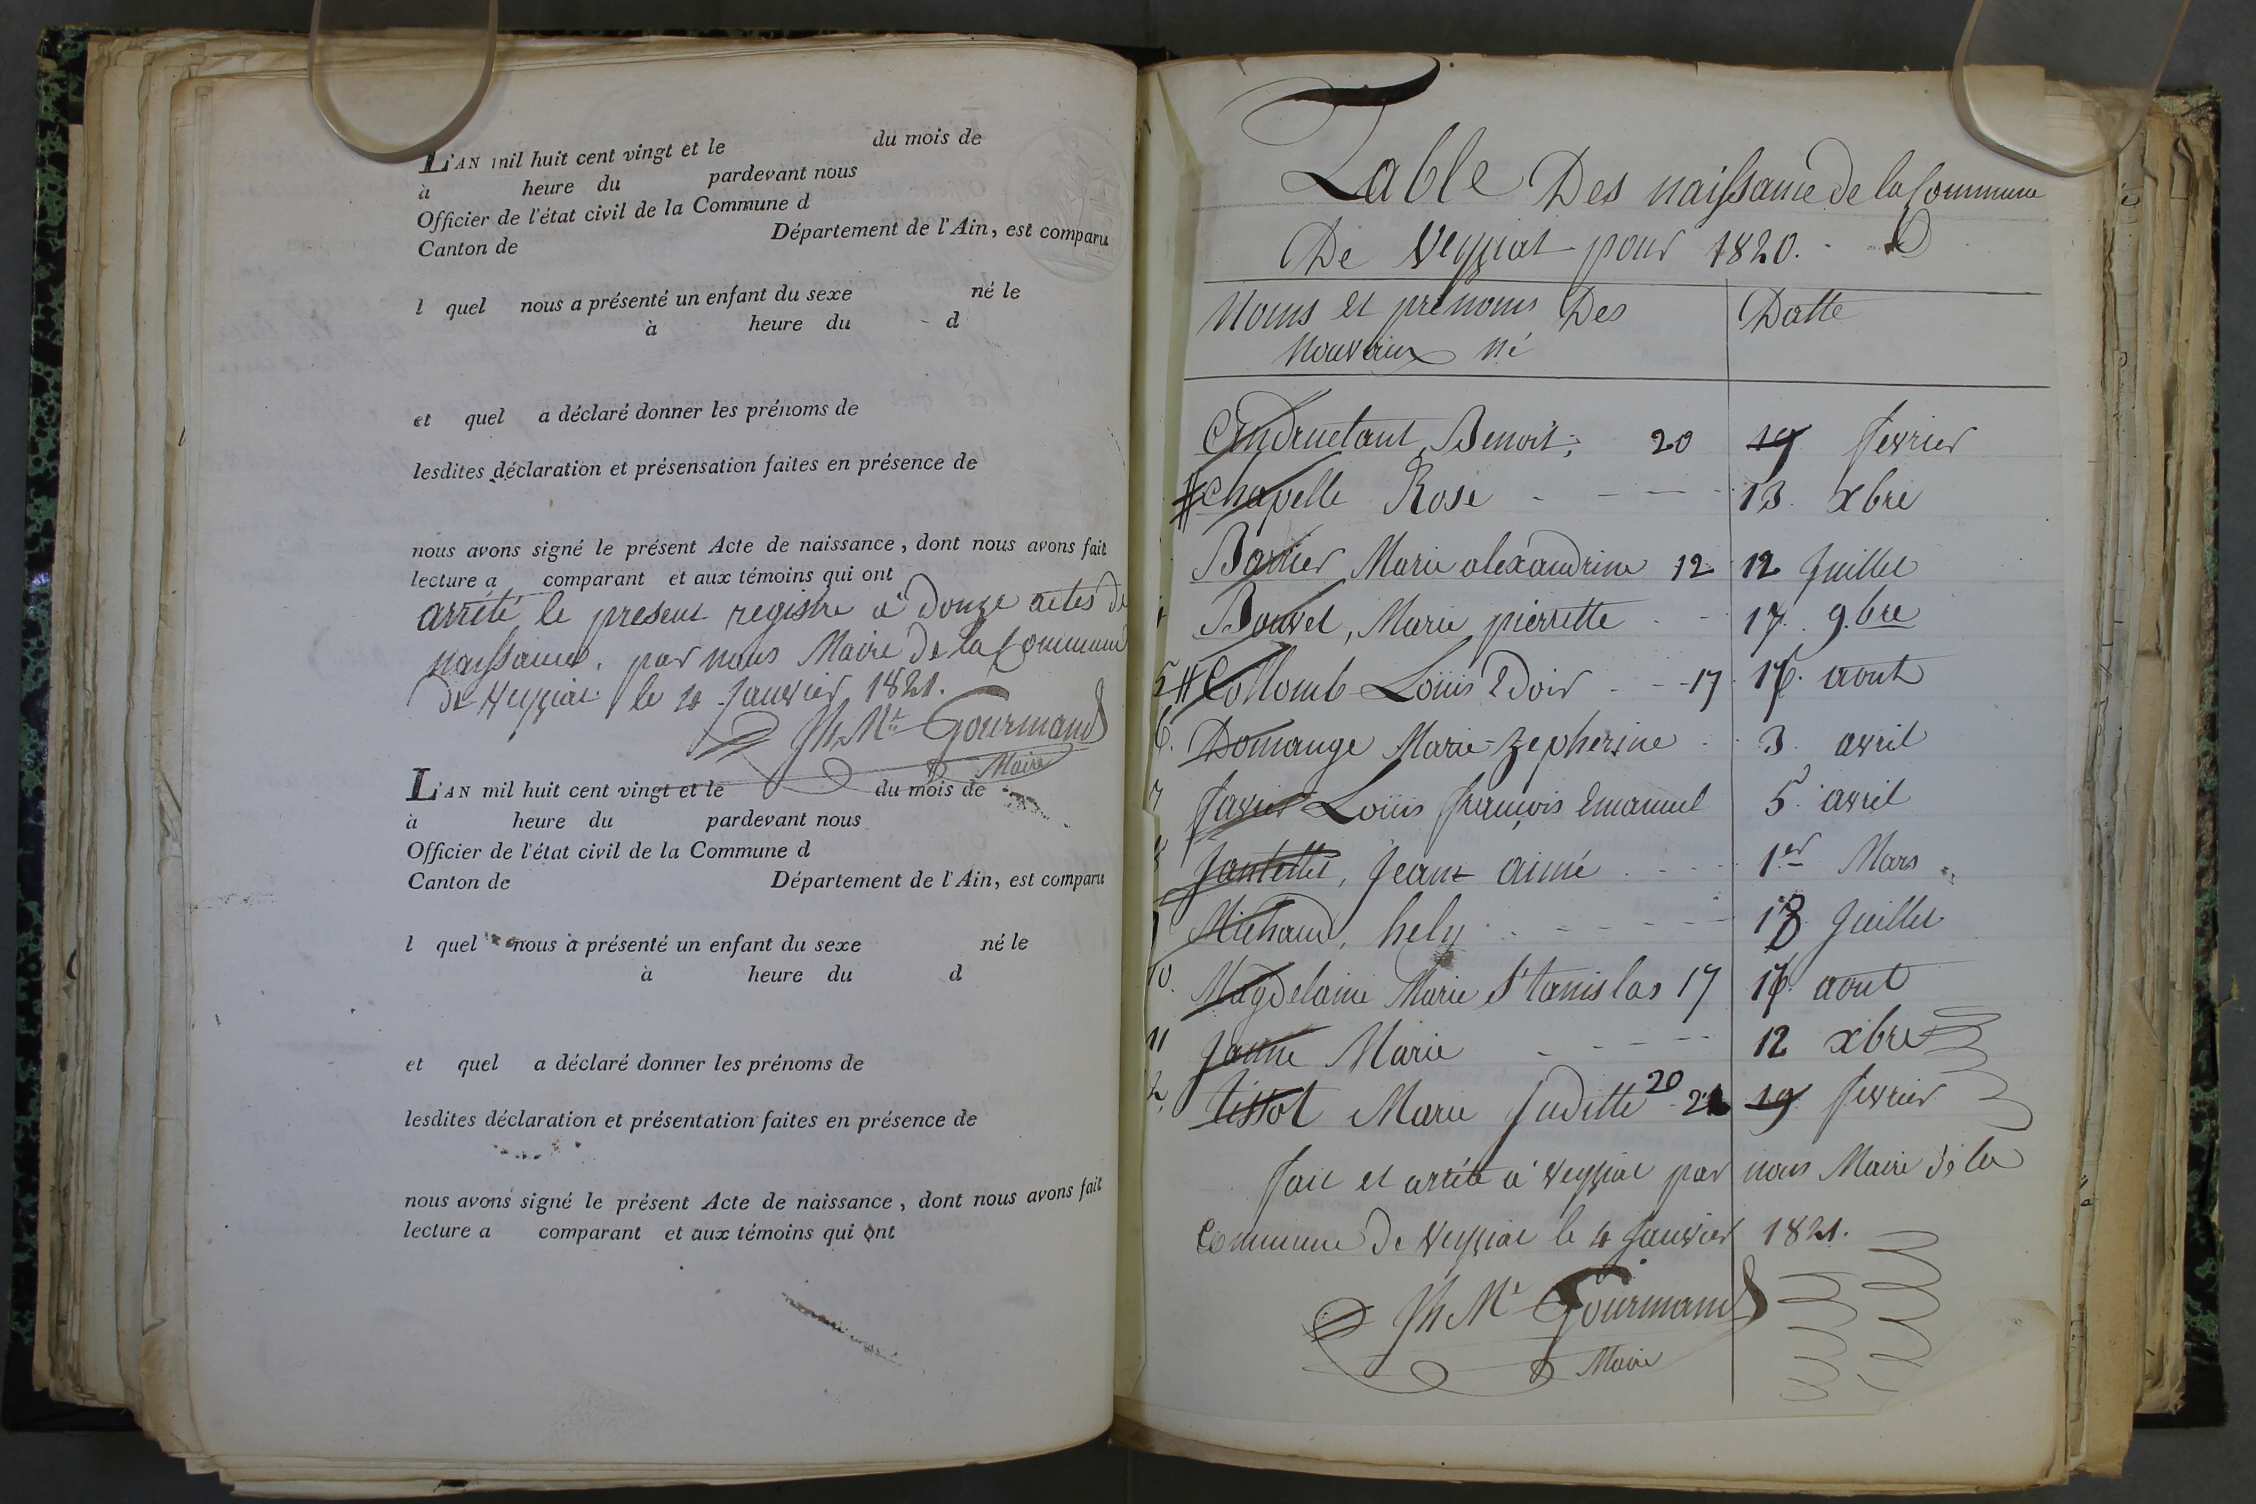 L'AN mil huit cent vingt et le du mois de
à heure du pardevant nous
Officier de l'état civil de la Commune d
Canton de Département de l'Ain, est comparu
l quel nous a présenté un enfant du sexe né le
à heure du d
et quel a déclaré donner les prénoms de
lesdites déclaration et présensation faites en présence de
nous avons signé le présent Acte de naissance, dont nous avons fait
lecture a comparant et aux témoins qui ont
arrêté le present registre a donze actes de
naissance, par nous Maire de la Commune
de Veyziat le 4 Janvier 1821.
Jh Mt Gourmand
Maire
L'AN mil huit cent vingt et le du mois de
à heure du pardevant nous
Officier de l'état civil de la Commune d
Canton de Département de l'Ain, est comparu
l quel nous a présenté un enfant du sexe né le
à heure du d
et quel a déclaré donner les prénoms de
lesdites déclaration et présentation faites en présence de
nous avons signé le présent Acte de naissance, dont nous avons fait
lecture a comparant et aux témoins qui ont
Table Des naissance de la Commune
De Veyziat pour 1820.
Noms et prénoms Des Datte
Nouveaux né
Andruetant, Benoit; 20 19 fevrier
Chapelle Rose 13 xbre
Barrier Marie alexandrine 12 12 Juillet
Bouvet, Marie pierrette 17. 9.bre
5 Collomb Loüis 17 aout
6. Domange Marie-Zepherine 3. avril
7 Favier Loüis françois Emanuel 5. avril
8 Jantellet, Jean aimé 1er Mars
Michaud, hely 18 Juillet
10. Magdelaine Marie Stanislas 17 aout
11 Janne Marie 12 xbre
2. tissot Marie Juditte 20 21 19 fevrier
fait et arrêté a Veyziat par nous Maire de la
Commune de Veyziat le 4 Janvier 1821.
Jh Mt Gourmand
Maire